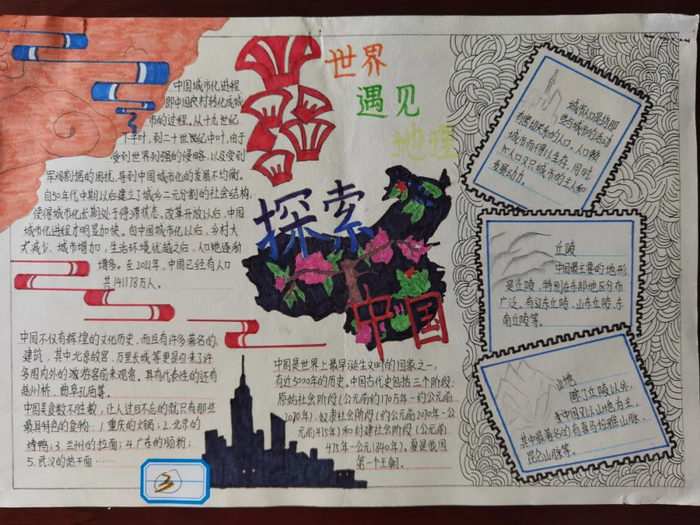 世界
遇见
地理
探索
中国
中国城市化进程
即中国农村转化成城
市的过程。从十九世纪
下半叶，到二十世纪中叶，由于
受到世界列强的侵略，以及受到
军阀割据的困扰，导到中国城市化的发展不均衡。
自50年代中期以后建立了城乡二元分割的社会结构，
使得城市化长期处于停滞状态。改革开放以后，中国
城市化进程才明显加快。自中国城市化以后，乡村大
大减少，城市增加，生活环境优越之后，人口也逐渐
增多。至2021年，中国已经有人口
共141178万人。
中国不仅有辉煌的文化历史，而且有许多著名的
建筑，其中北京故宫、万里长城等更是引来了许
多国内外的旅游客前来观看。具有代表性的还有
赵州桥、曲阜孔庙等。
中国美食数不胜数，让人过目不忘的就只有那些
最具特色的食物：1.重庆的火锅；2.北京的
烤鸭；3.兰州的拉面；4.广东的肠粉；
5.武汉的热干面……
中国是世界上最早诞生文明的国家之一，
有近5000年的历史。中国古代史包括三个阶段：
原始社会阶段（约公元前170万年-约公元前
2070年），奴隶社会阶段（公元前2070年-公
元前475年）和封建社会阶段（公元前
475年-公元1840年）。夏是我国
第一个王朝。
城市人口是指那
些与城市的活动
有密切关系的人口，人口依
城市而得以生存，同时
人口又是城市的主人和
发展动力。
丘陵
中国最主要的地形
是丘陵，特别在东部地区分布
广泛，有辽东丘陵、山东丘陵、东
南丘陵等。
山地
除了丘陵以外，
中国又以山地为主，
其中最著名的有喜马拉雅山脉、
昆仑山脉等。
3